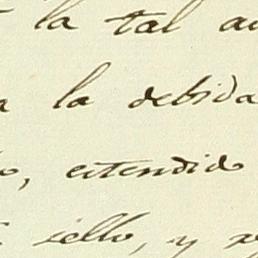 la tal
la debida
, estendido
sello, y